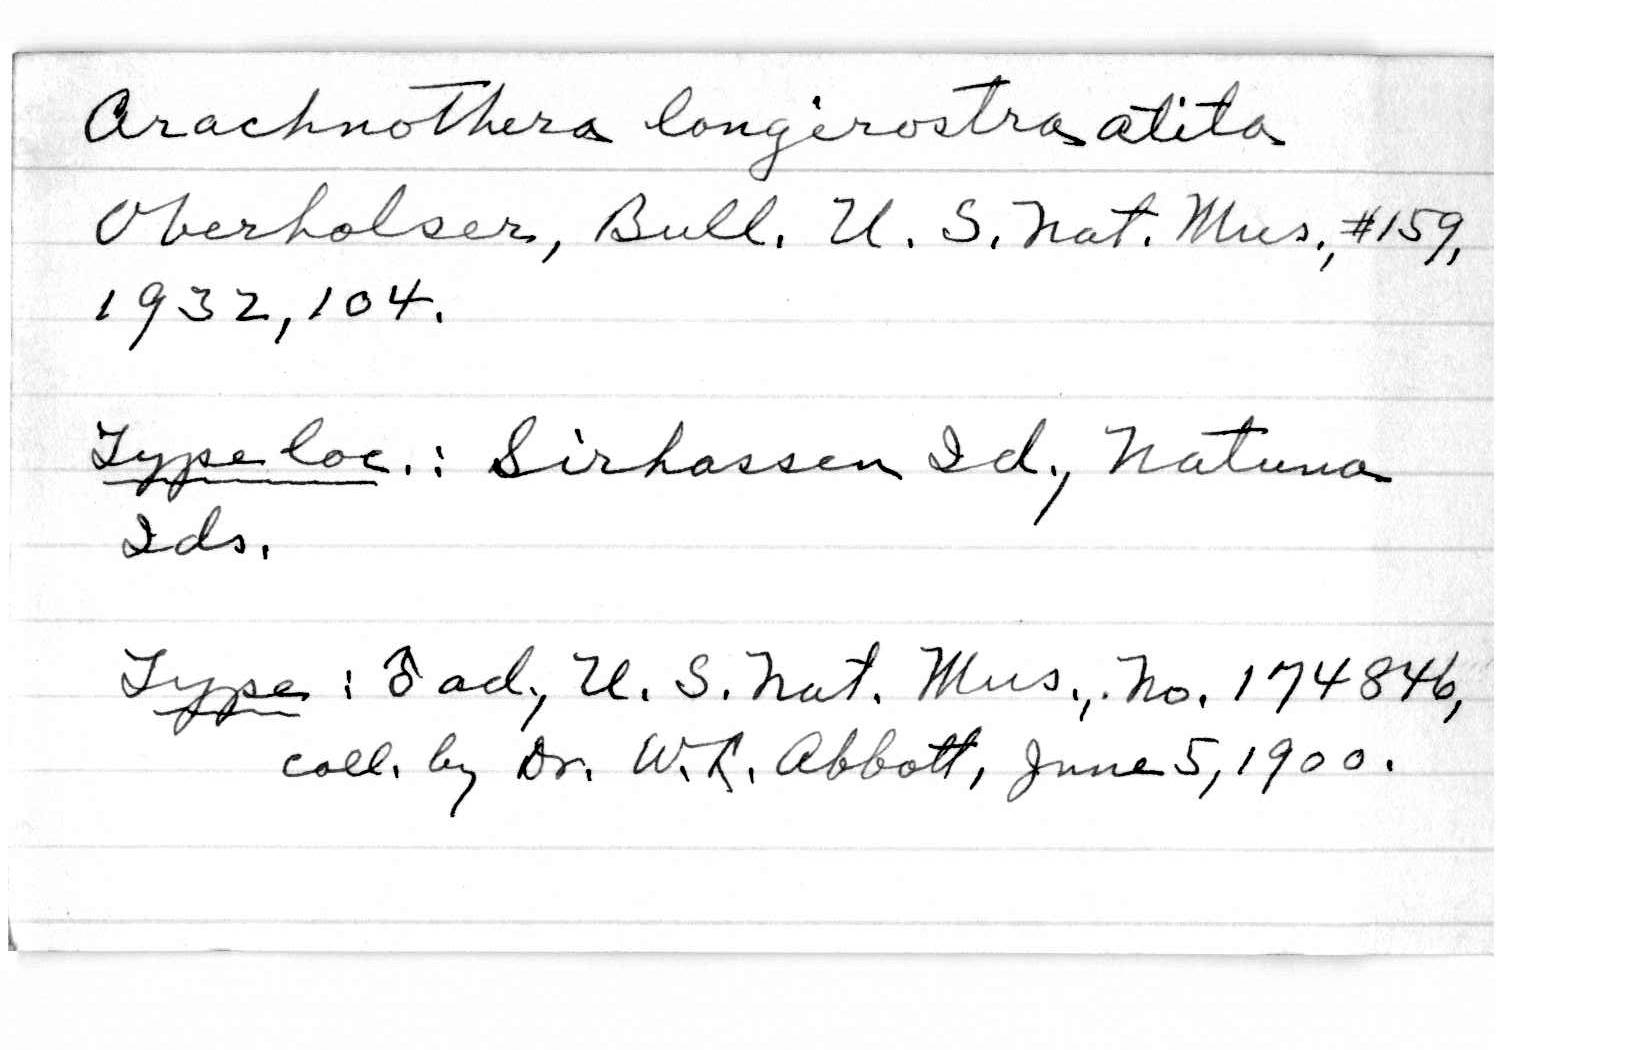 Arachnothera longirostra atita
Oberholser, Bull. U. S. Nat. Mus., #159,
1932, 104.
Type loc.: Sirhassen Id., Natuna
Ids.
Type: ♂ ad., U. S. Nat. Mus., No. 174846,
coll. by Dr. W. L. Abbott, June 5, 1900.